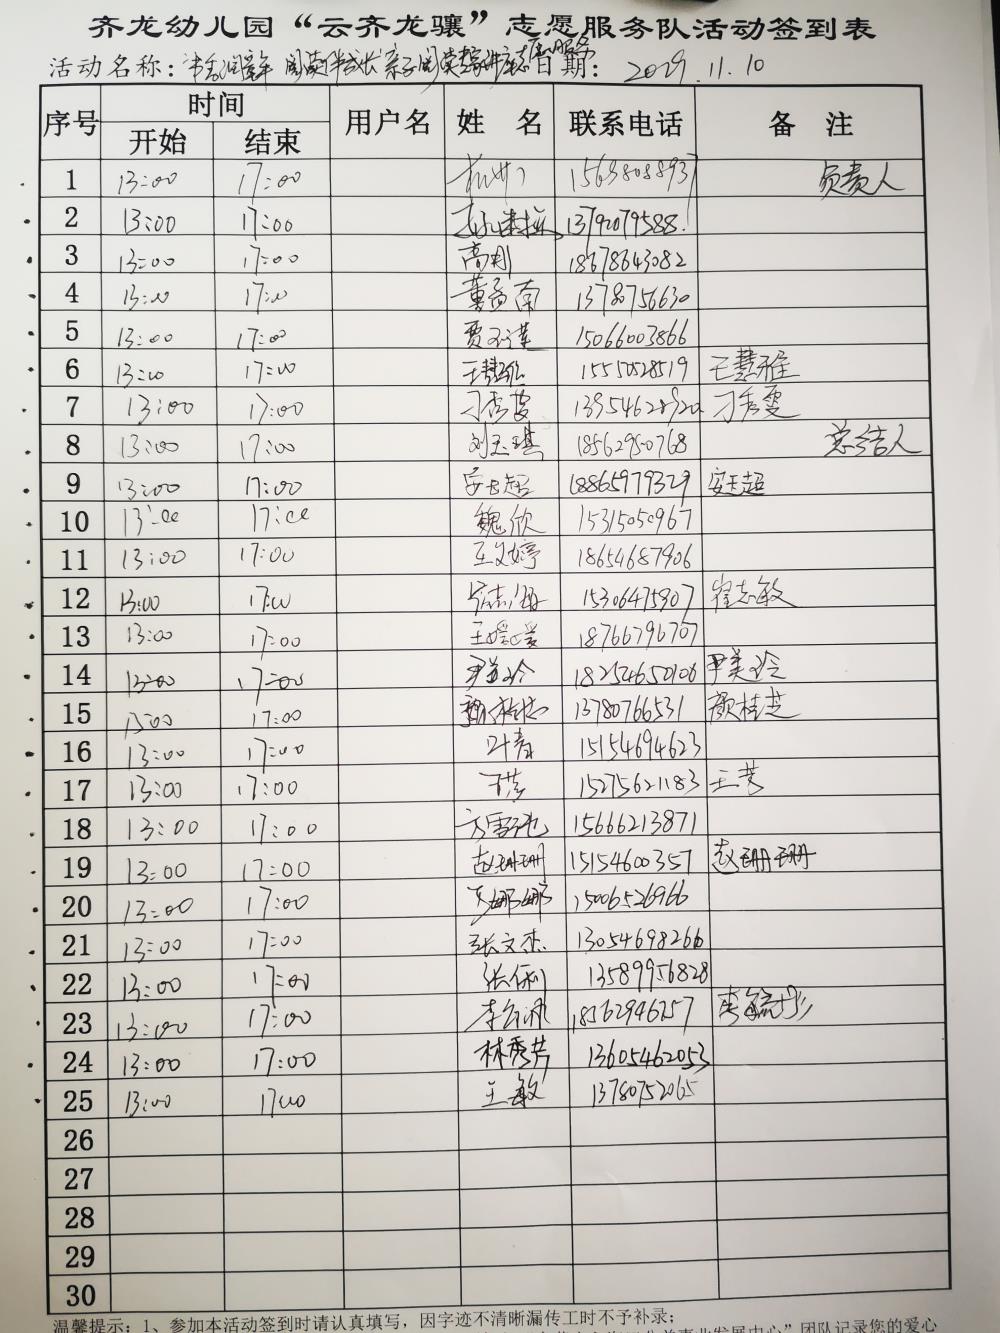 齐龙幼儿园“云齐龙骧”志愿服务队活动签到表
活动名称：书香润童年 阅读伴成长 亲子阅读 志愿服务 日期： 2029.11.10
序号 时间 用户名 姓 名 联系电话 备 注
开始 结束
1 13:00 17:00 负责人
2 13:00 17:00 13792079588
3 13:00 17:00 高刚 18678643082
4 13:00 17:00 董孟南 13780756630
5 13:00 17:00 15066003866
6 13:00 17:00 王慧雅 15550528519 王慧雅
7 13:00 17:00 刁秀雯 13954628920 刁秀雯
8 13:00 17:00 刘玉琪 18562950768 总结人
9 13:00 17:00 安玉超 18865979329 安玉超
10 13:00 17:00 魏欣 15315050967
11 13:00 17:00 王文婷 18654687906
12 13:00 17:00 崔志敏 15306475907 崔志敏
13 13:00 17:00 王媛媛 18766796707
14 13:00 17:00 尹美玲 18254650106 尹美玲
15 13:00 17:00 颜桂芝 13780766531 颜桂芝
16 13:00 17:00 叶青 15154694623
17 13:00 17:00 15275621183
18 13:00 17:00 15666213871
19 13:00 17:00 赵珊珊 15154600357 赵珊珊
20 13:00 17:00 15006526966
21 13:00 17:00 张文杰 13054698266
22 13:00 17:00 张俐 13589956828
23 13:00 17:00 18562946757
24 13:00 17:00 林秀芹 13605462053
25 13:00 17:00 王敏 13780752065
26
27
28
29
30
温馨提示：1、参加本活动签到时请认真填写，因字迹不清晰漏传工时不予补录；
团队记录您的爱心